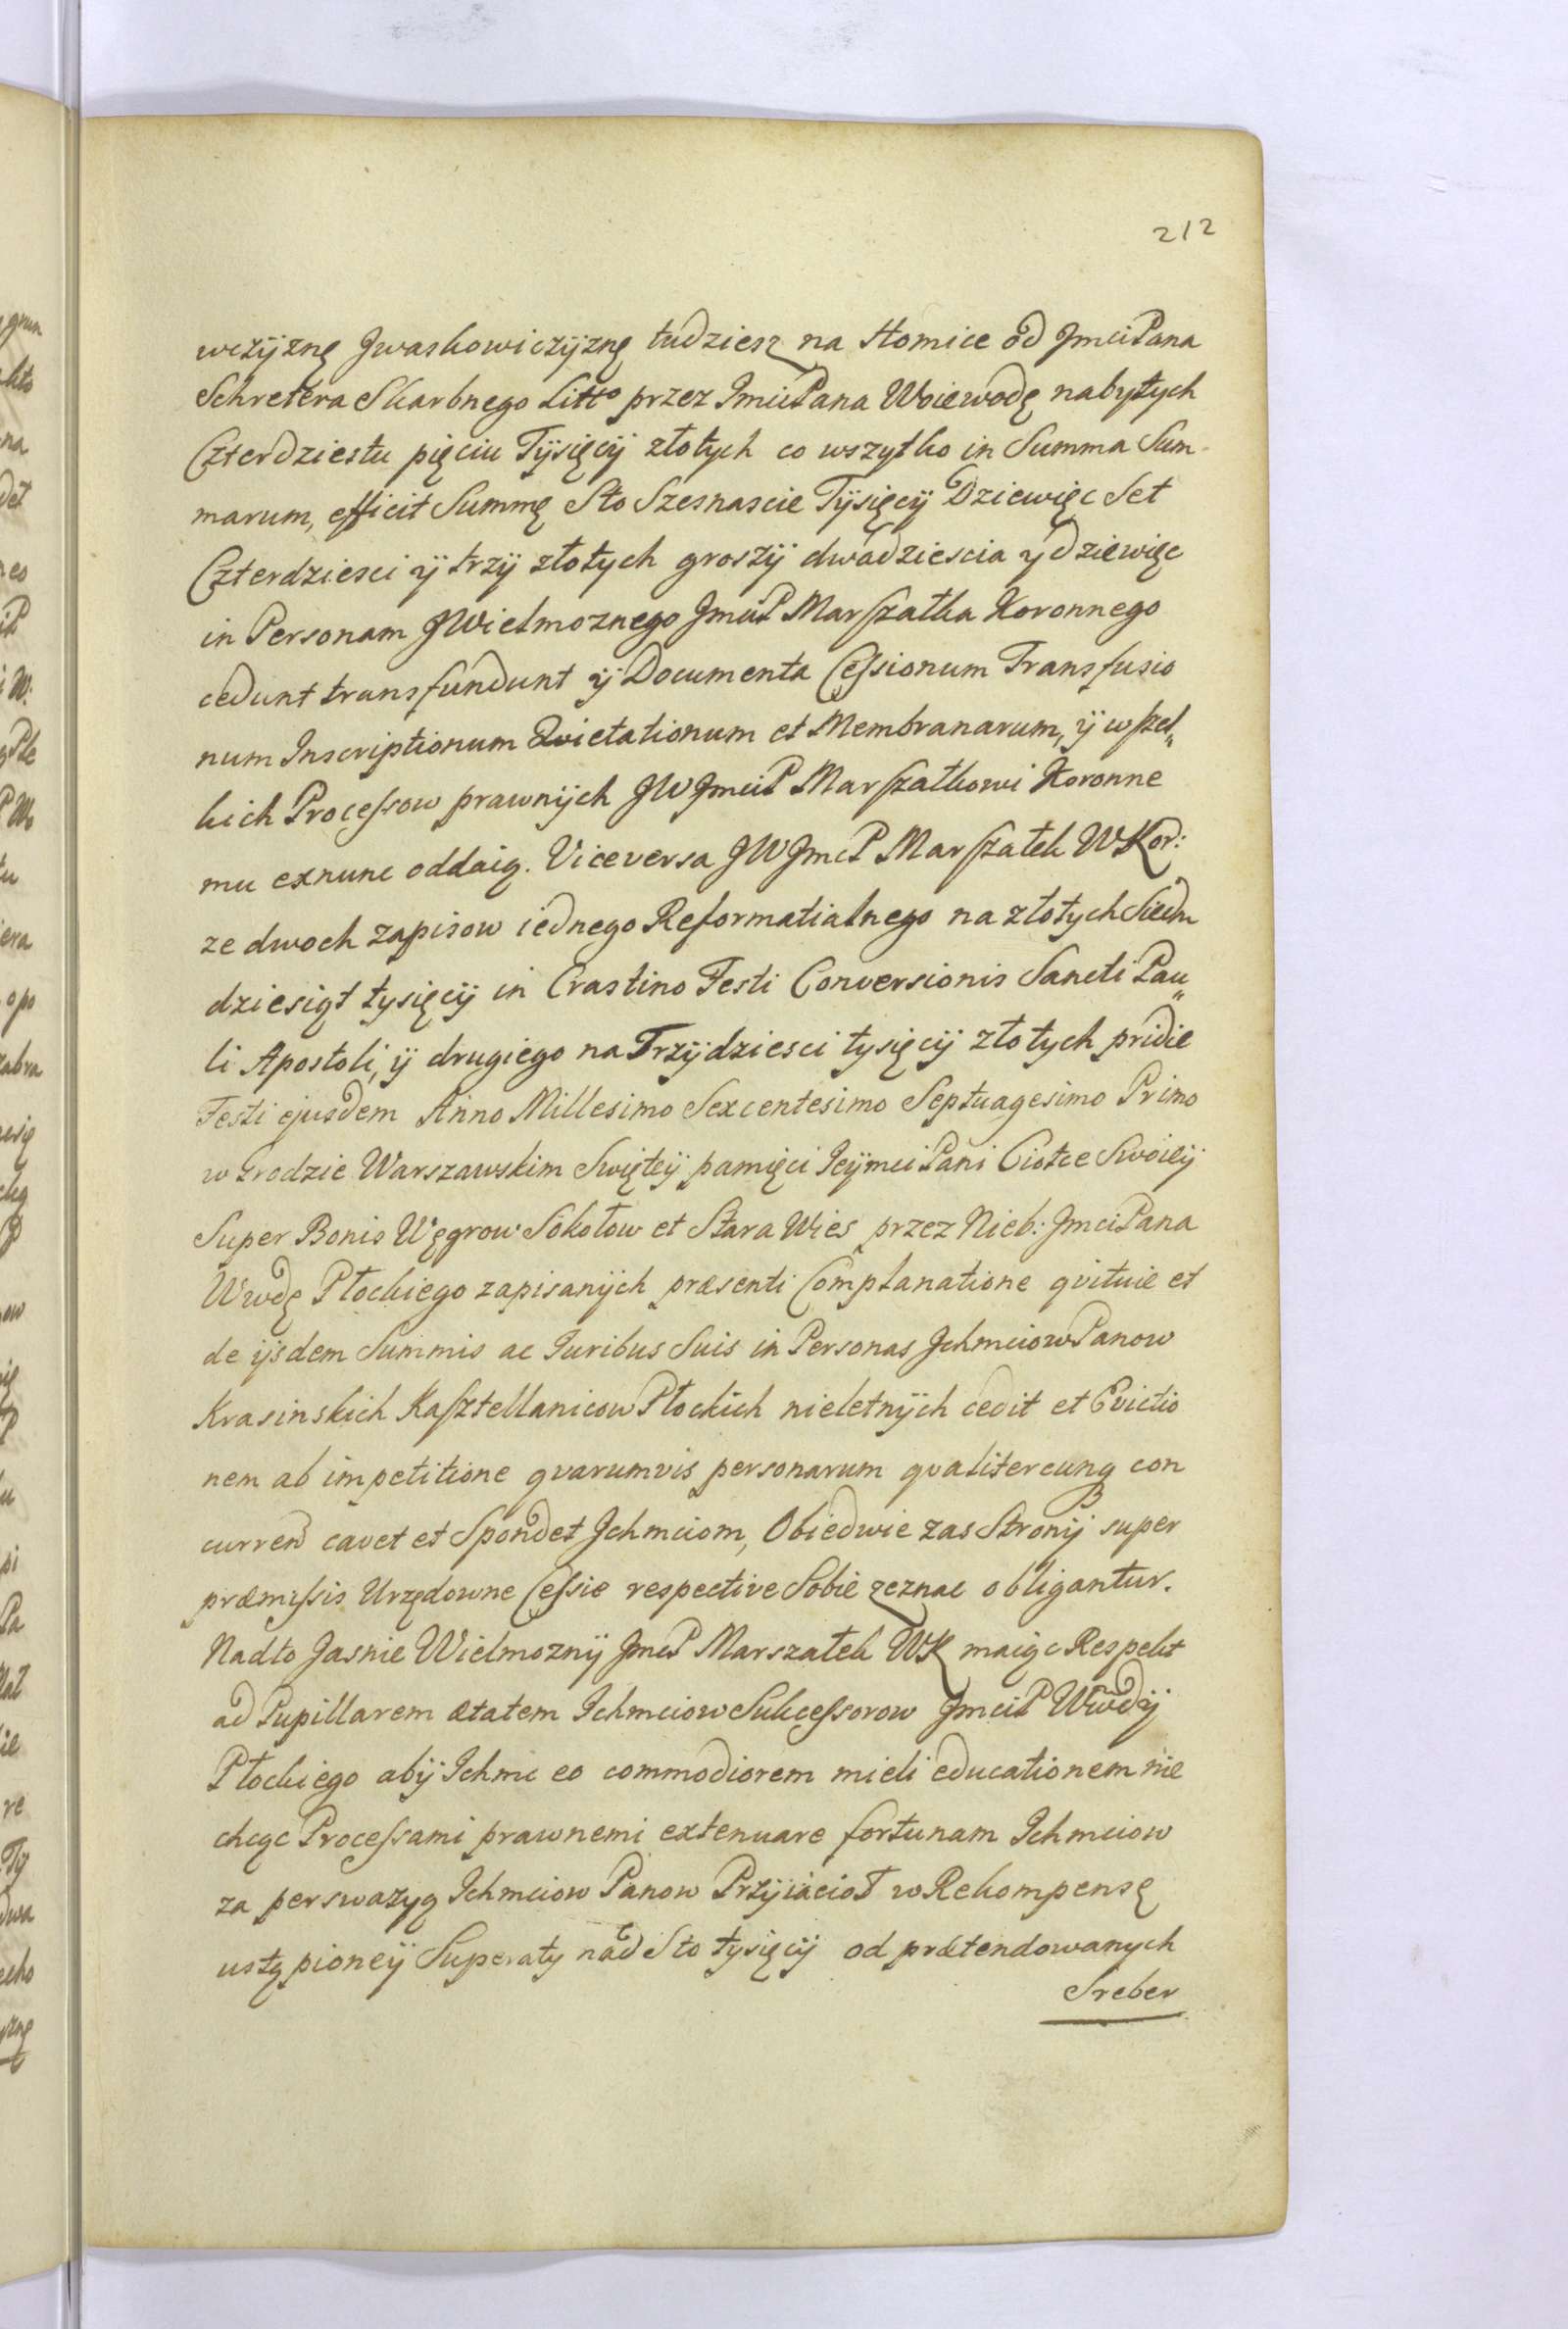 212
wczÿznę Jwaskowiczÿznę tudziesz na Słomice od JmciPana
Schretera Skarbnego Litto przez JmciPana Woiewodę nabytych
Czterdziestu pięciu Tÿsięcÿ złotych co wszytko in Summa Sum-
marum, efficit Summę Sto Szesnascie Tÿsięcÿ Dziewięc Set
Czterdziesci ÿ trzÿ złotych groszÿ dwadziescia y dziewięc
in Personam JWielmoznego JmciP Marszałka Koronnego
cedunt transfundunt ÿ Documenta Cessionum Transfusio
num Inscriptionum Qvietationum et Membranarum, ÿ wszel„
kich Processow prawnÿch JWJmciP Marszałkowi Koronne
mu exnunc oddaią. Viceversa JWJmcP Marszałek WKor:
ze dwoch zapisow iednego Reformatialnego na złotych Siedm
dziesiąt tysięcÿ in Crastino Festi Conversionis Sancti Pau„
li Apostoli, ÿ drugiego na Trzÿdziesci tysięcÿ złotych pridie
Festi ejusdem Anno Millesimo Sexcentesimo Septuagesimo Primo
w Grodzie Warszawskim Swięteÿ pamięci JeÿmciPani Ciotce Swoieÿ
Super Bonis Węgrow Sokołow et Stara Wies przez Nieb: JmciPana
Wwdę Płockiego zapisanÿch præsenti Complanatione qvituie et
de ÿsdem Summis ac Iuribus Suis in Personas JchmciowPanow
Krasinskich Kasztellanicow Płockich nieletnÿch cedit et Evictio
nem ab impetitione qvarumvis personarum qvalitercunq con
curren cavet et Spondet Jchmciom, Obiedwie zas Stronÿ super
præmissis Urzędowne Cessie respective Sobie zeznac obligantur.
Nadto Jasnie Wielmoznÿ JmcP Marszałek WK maiąc Respekt
ad Pupillarem ætatem Ichmciow Sukcessorow JmciP Wwdÿ
Płockiego abÿ Ichmc eo commodiorem mieli educationem nie
chcąc Processami prawnemi extenuare fortunam Ichmciow
za perswazyą Ichmciow Panow Przÿiacioł w Rekompensę
ustąpioneÿ Superaty nad Sto tysięcÿ od prætendowanych
Sreber